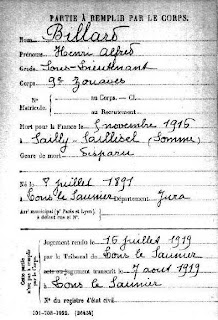 PARTIE À REMPLIR PAR LE CORPS.
Nom Billard
Prénoms Henri Alfred
Grade Sous-Lieutenant
Corps 9e Zouaves
N° au Corps. — Cl.
Matricule. au Recrutement
Mort pour la France le 5 novembre 1916
à Sailly-Saillisel (Somme)
Genre de mort Disparu
Né le 8 juillet 1891
à Lons le Saunier Département Jura
Arr' municipal (pr Paris et Lyon),
à défaut rue et N°.
Jugement rendu le 16 juillet 1919
par le Tribunal de Lons le Saunier
acte ou jugement transcrit le 7 août 1919
à Lons le Saunier
N° du registre d'état civil
Cette partie
n'est pas à remplir
par le Corps.